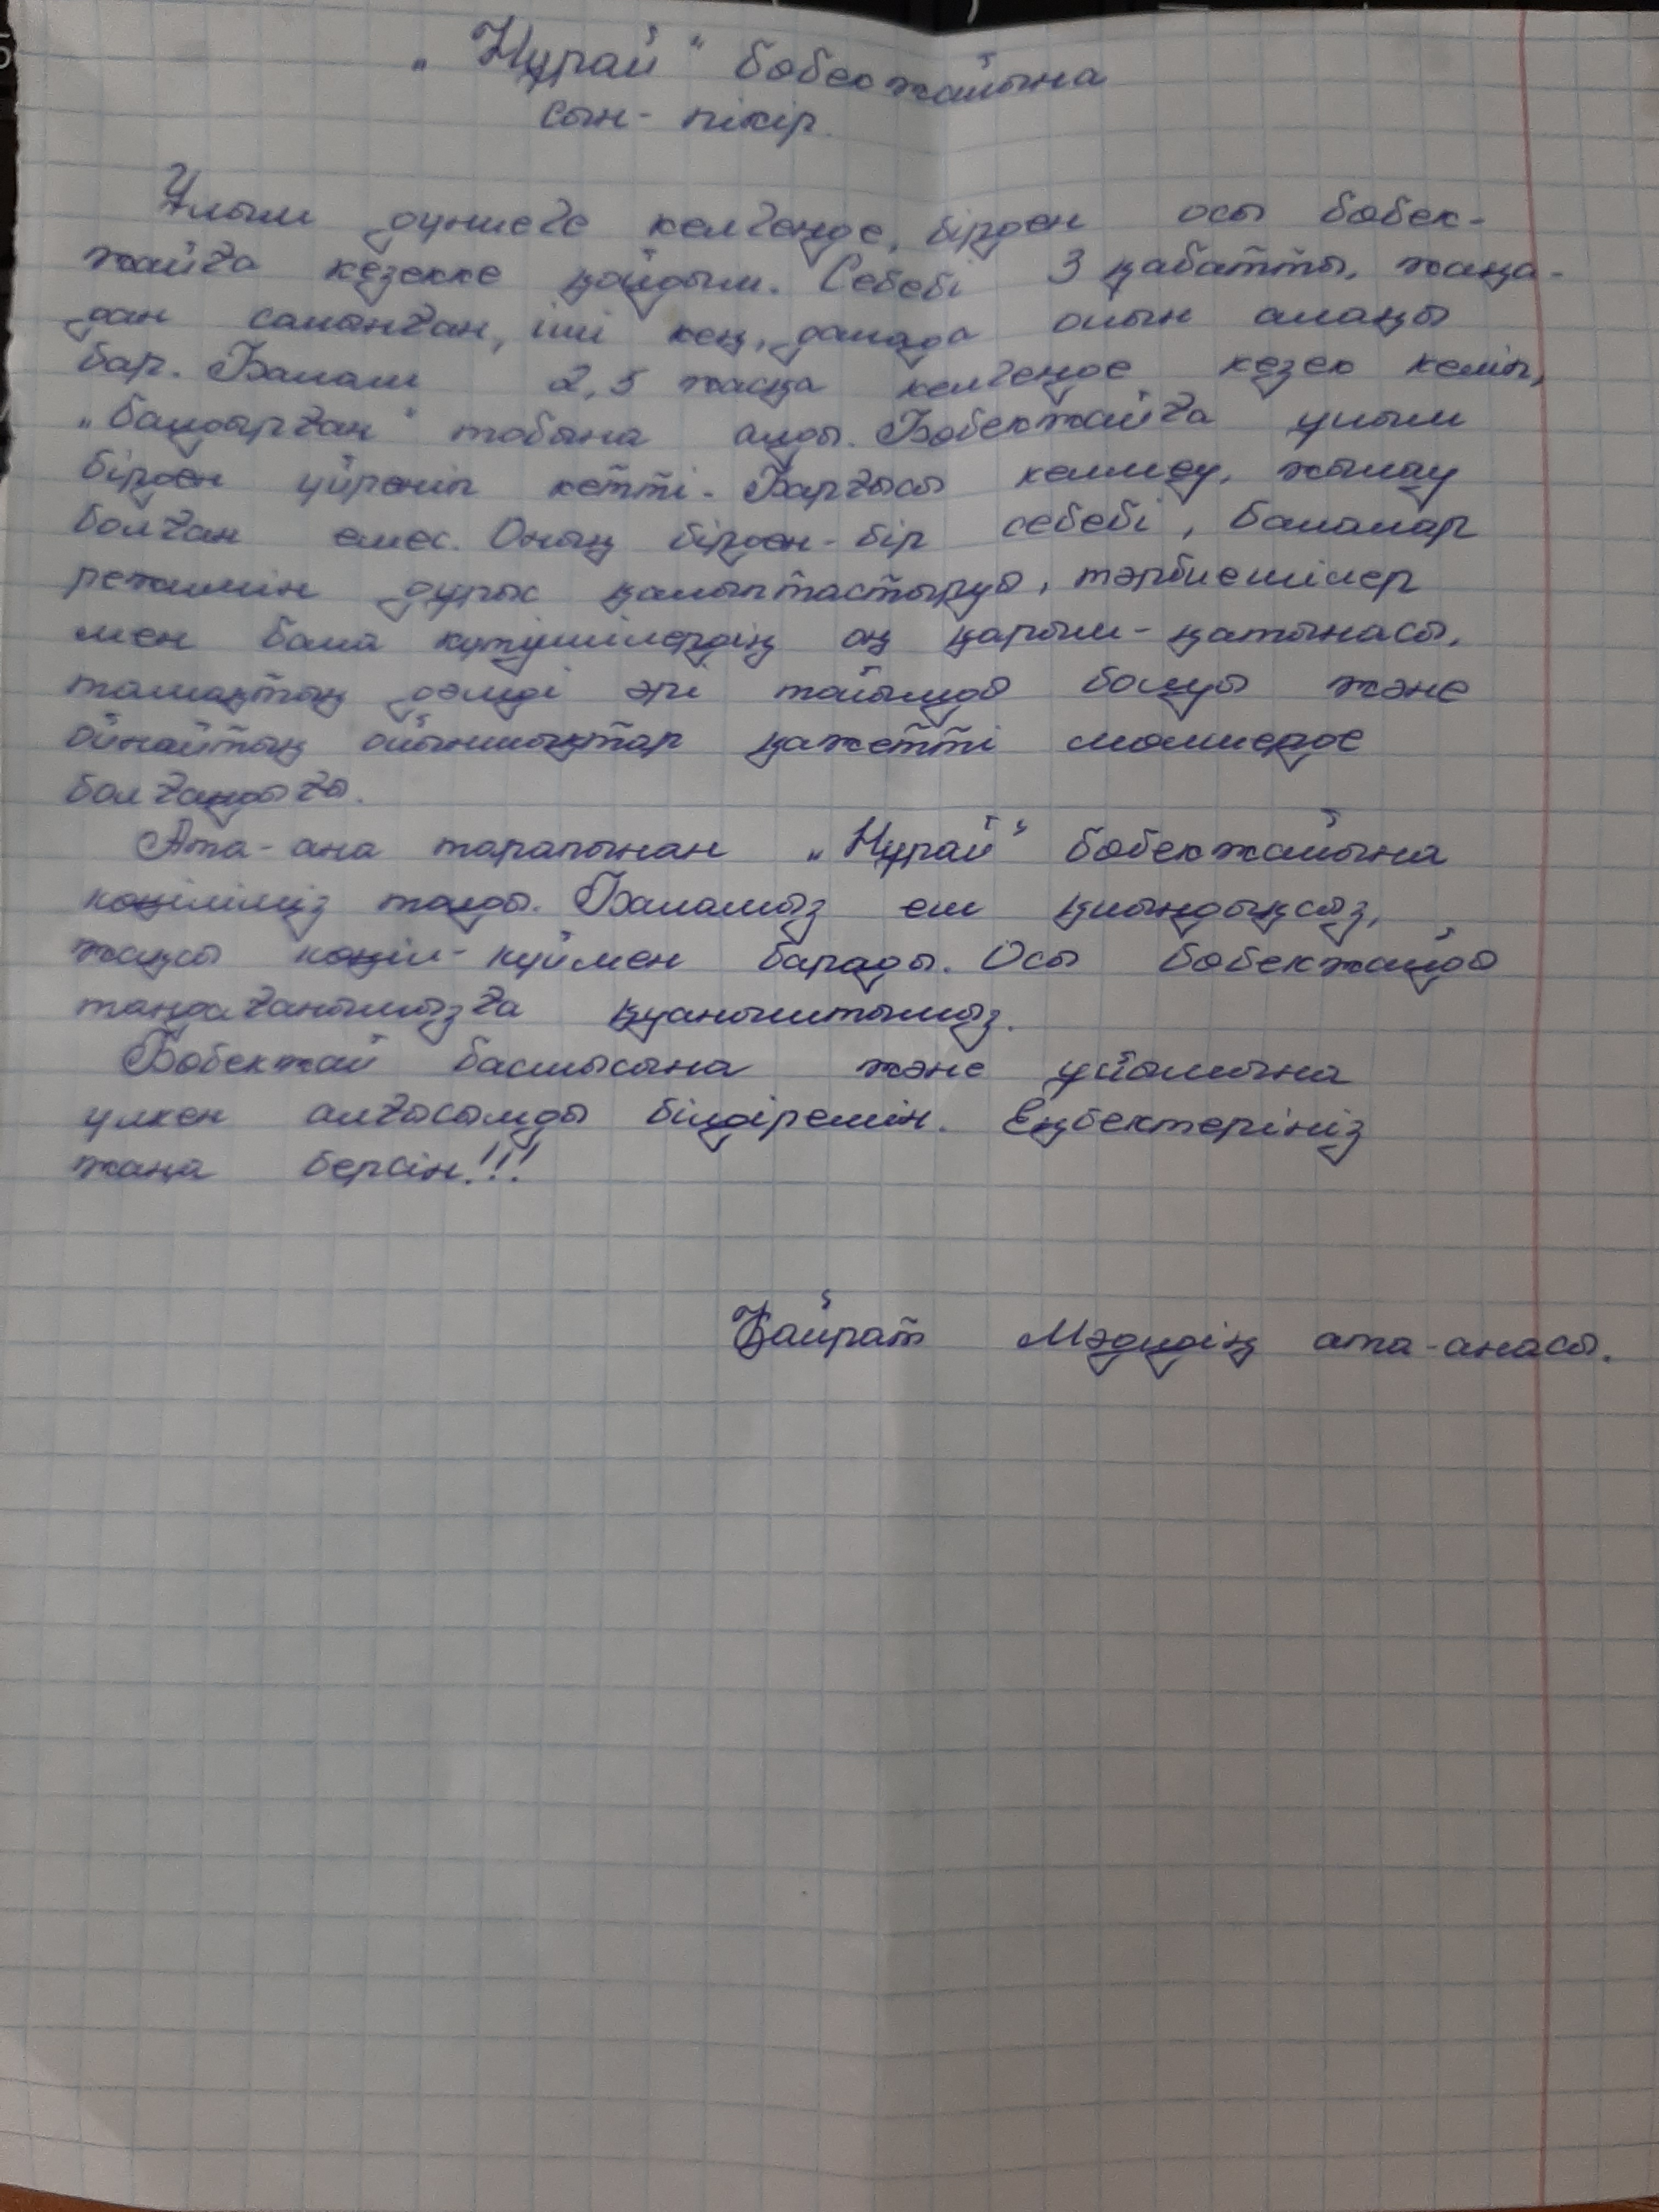 „Нұрай" бөбекжайына
сын-пікір.
Ұлым дүниеге келгенде, бірден осы бөбек-
жайға кезекке қойдым. Себебі 3 қабатты, жаңа-
дан салынған, іші кең, далада ойын алаңы
бар. Балам 2,5 жасқа келгенде кезек келіп,
„Балдырған" тобына алды. Бөбекжайға ұлым
бірден үйреніп кетті. Барғысы келмеу, жылау
болған емес. Оның бірден-бір себебі, балалар
режимін дұрыс қалыптастыруы, тәрбиешілер
мен бала күтушілердің оң қарым-қатынасы,
тамақтың дәмді әрі тойымды болуы және
ойнайтың ойыншықтар қажетті мөлшерде
болғандығы.
Ата-ана тарапынан „Нұрай" бөбекжайына
көңіліміз толды. Баламыз еш қиындықсыз,
жақсы көңіл-күймен барады. Осы бөбекжайды
таңдағанымызға қуаныштымыз.
Бөбекжай басшысына және ұйымына
үлкен алғысымды білдіремін. Еңбектеріңіз
жана берсін!!!
Қайрат Мәдидің ата-анасы.